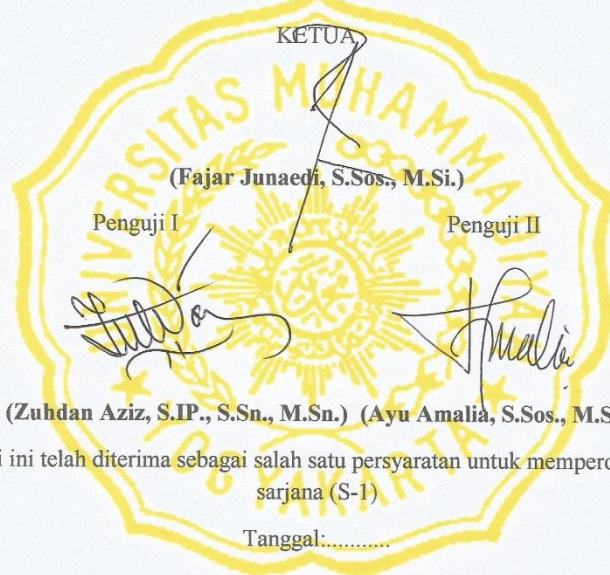 KETUA
(Fajar Junaedi, S.Sos., M.Si.)
Penguji I
Penguji II
(Zuhdan Aziz, S.IP., S.Sn., M.Sn.) (Ayu Amalia, S.Sos., M.S
i ini telah diterima sebagai salah satu persyaratan untuk mempero
sarjana (S-1)
Tanggal:...........
UNIVERSITAS MUHAMMADIYAH
YOGYAKARTA